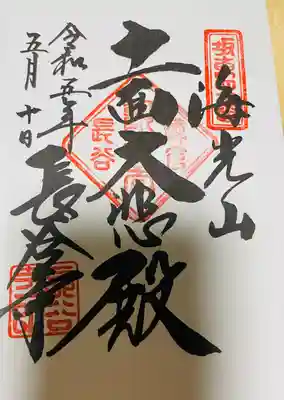 海光山
十一面大悲殿
令和五年
五月十日
長谷寺
長谷